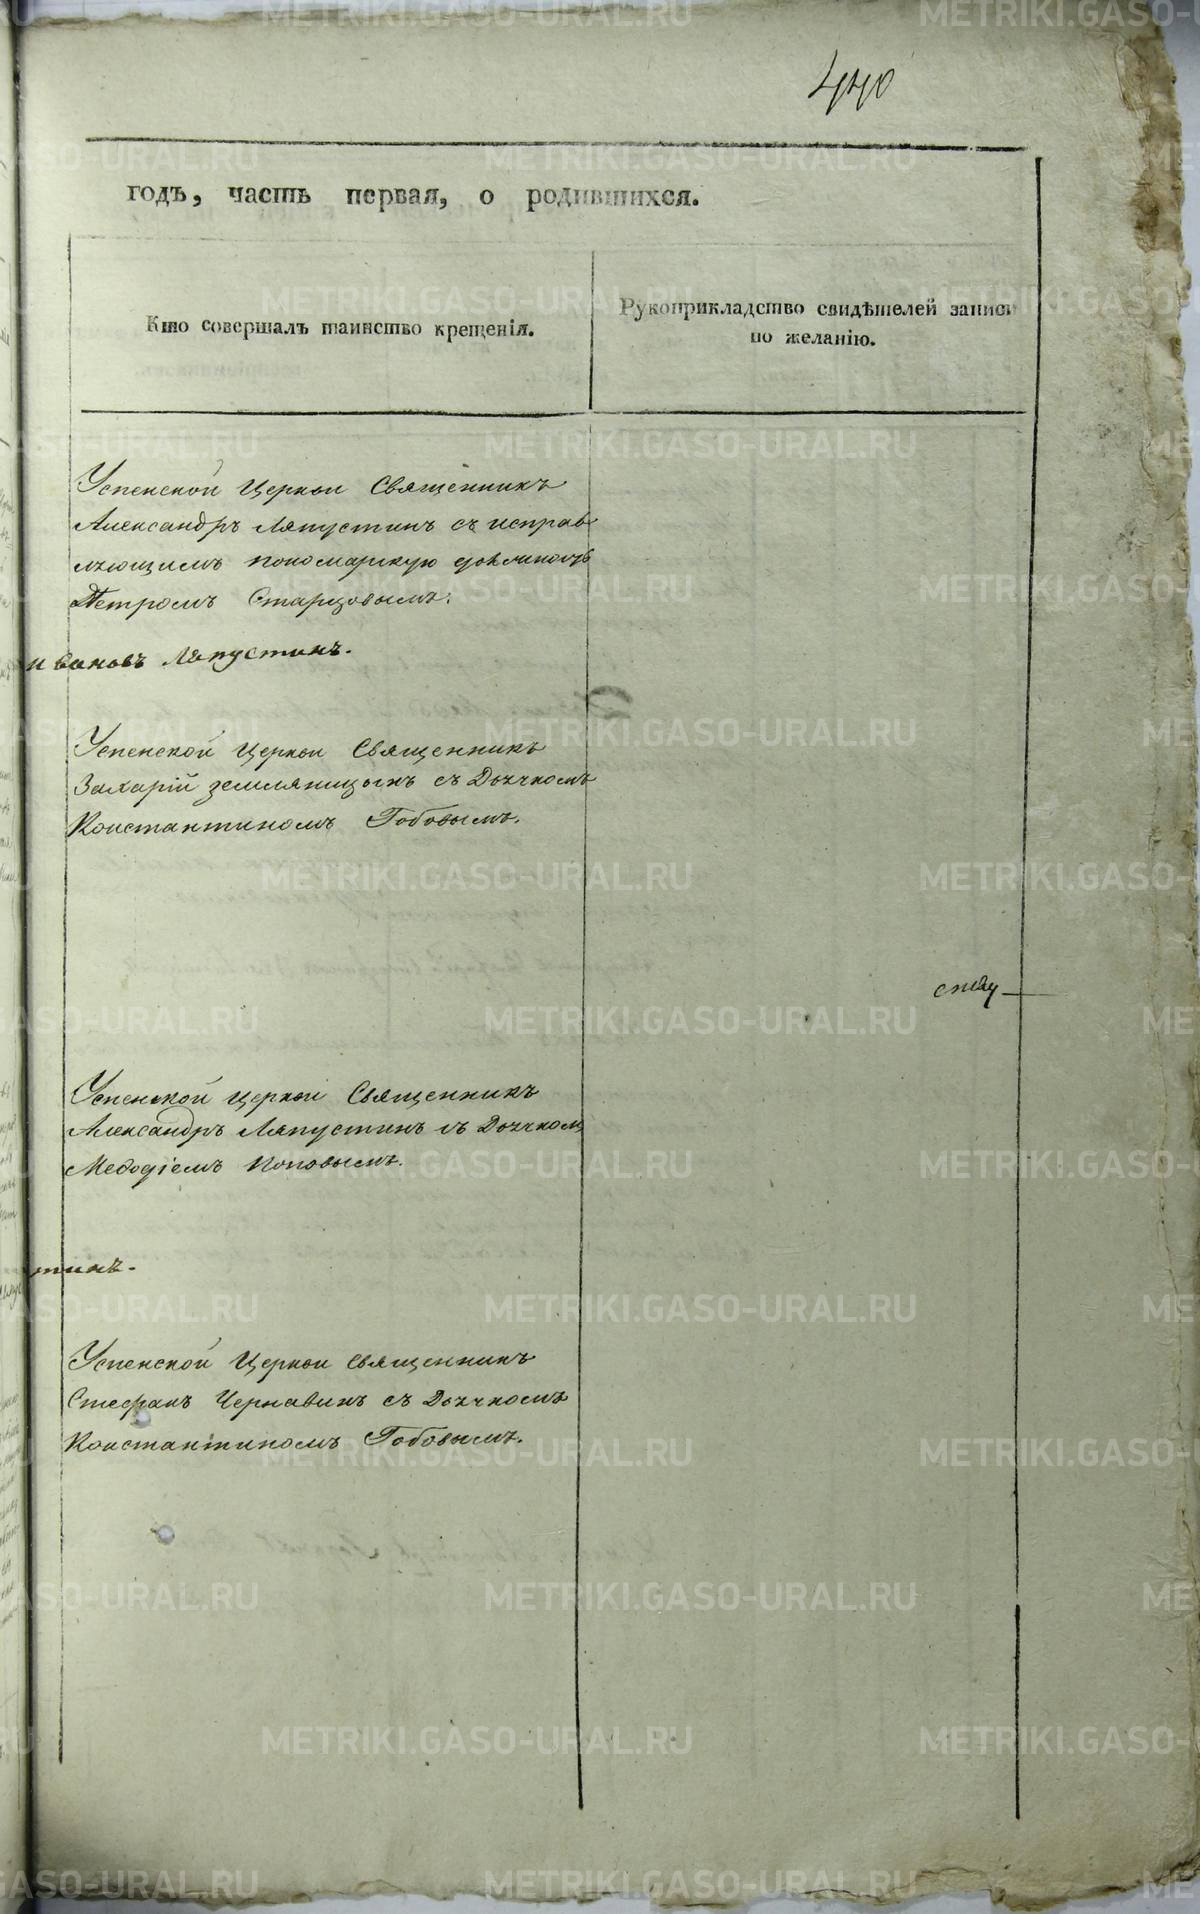 440
годъ, часть первая, о родившихся.
Кто совершалъ таинство крещенія.
Рукоприкладство свидѣтелей записи
по желанію.
Успенской Церкви Священникъ
Александръ Ляпустинъ съ исправ
ляющимъ пономарскую должность
Петромъ Старцовымъ.
Ивановъ Ляпустинъ.
Успенской Церкви Священникъ
Захарій Земляницынъ съ Дьячкомъ
Константиномъ Гобовымъ.
Успенской Церкви Священникъ
Александръ Ляпустинъ съ Дьячкомъ
Меѳодіемъ Поповымъ.
тинъ.
Успенской Церкви священникъ
Стефанъ Чернавинъ съ Дьячкомъ
Константиномъ Гобовымъ.
METRIKI.GASO-URAL.RU